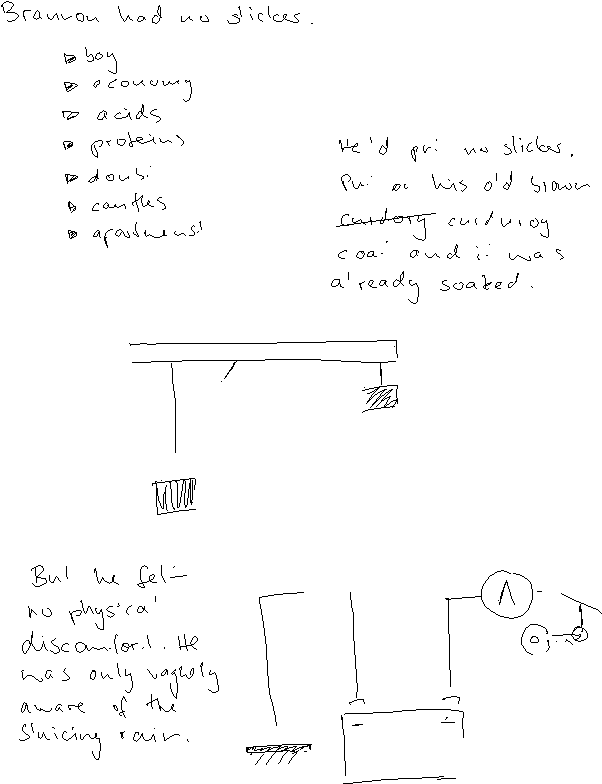 Brannon had no slicker.
boy
economy
acids
proteins
doubt
castles
apartment
He'd put no slicker.
Put on his old brown
cordory corduroy
coat and it was
already soaked.
But he felt
no physical
discomfort. He
was only vaguely
aware of the
sluicing rain.
A